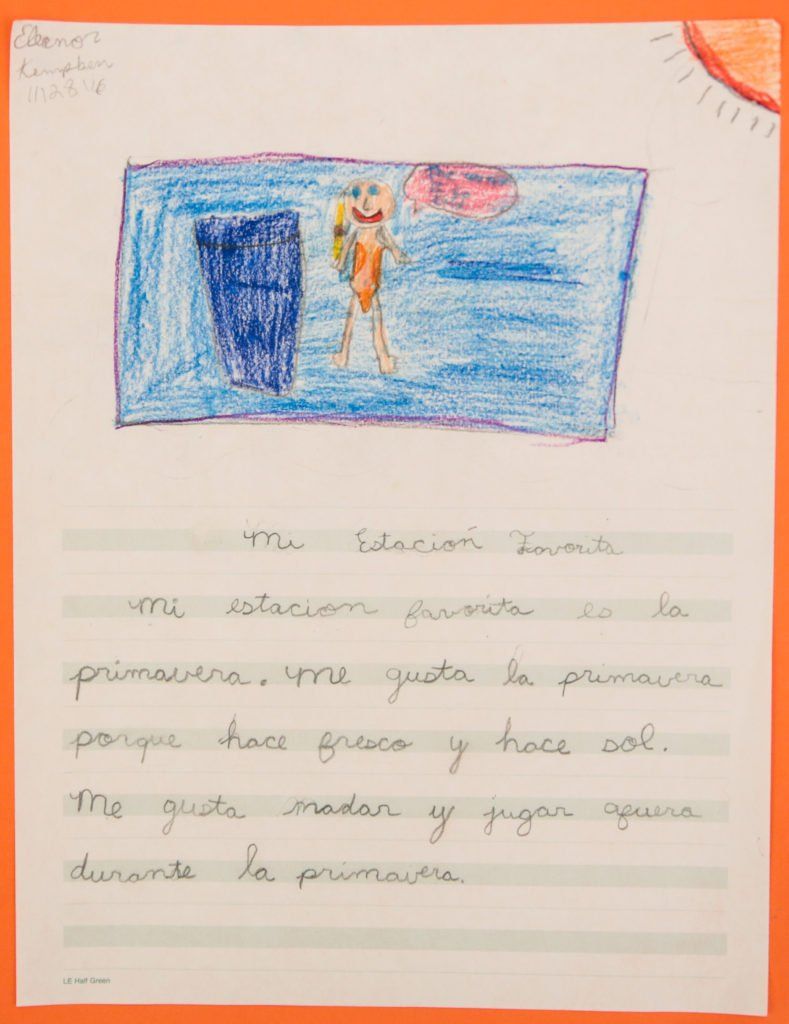 Eleanor
Kempken
11/28/16
Mi Estación Favorita
Mi estacion favorita es la
primavera. Me gusta la primavera
porque hace fresco y hace sol.
Me gusta nadar y jugar afuera
durante la primavera.
LE Half Green